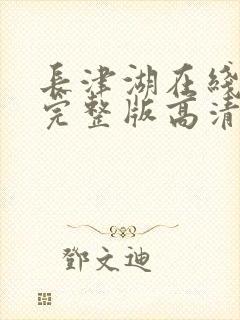 長津湖在綫
完整版高清
鄧文迪